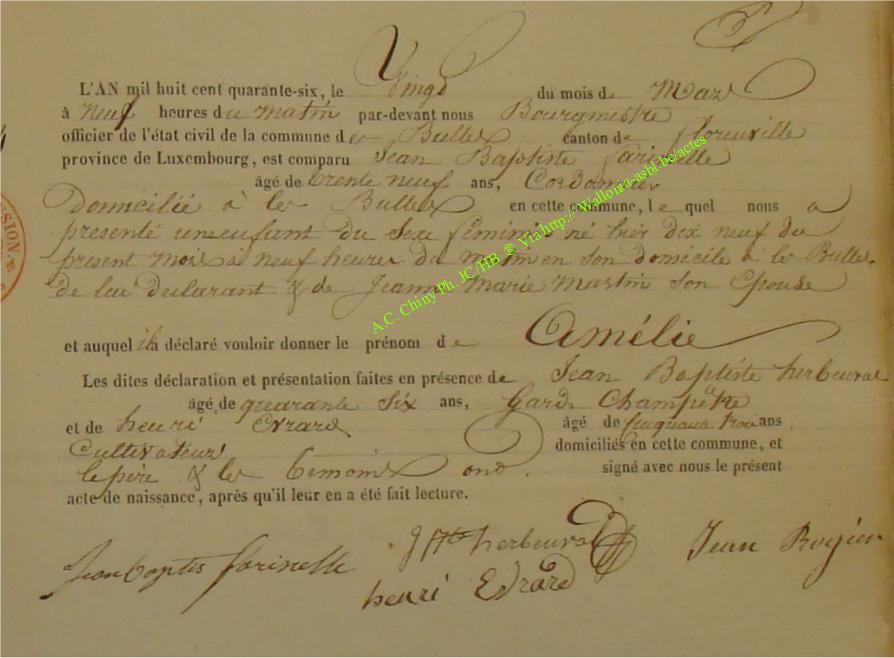 L'AN mil huit cent quarante-six, le Vingt du mois de Mars
à neuf heures du matin par-devant nous Bourgmestre
officier de l'état civil de la commune de les Bulles canton de florenville
province de Luxembourg, est comparu Jean Baptiste farinelle
âgé de trente neuf ans, Cordonnier
Domicilié à les Bulles en cette commune, le quel nous a
presenté un enfant du Sexe féminin né hier dix neuf du
present mois à neuf heures du matin en son domicile à les Bulles
de lui declarant & de Jeanne Marie Martin son Epouse
et auquel il a déclaré vouloir donner le prénom de Amélie
Les dites déclaration et présentation faites en présence de Jean Baptiste herbeuval
âgé de quarante six ans, Garde Champêtre
et de henri Evrard âgé de Cinquante trois ans
Cultivateur domiciliés en cette commune, et
le père & les temoins ont signé avec nous le présent
acte de naissance, après qu'il leur en a été fait lecture.
Jean baptis farinelle
J Bte herbeuval
Jean Rogier
henri Evrard
A.C. Chiny Ph. IC/HB ® Via http://Wallonia-asbl.be/actes
SION.